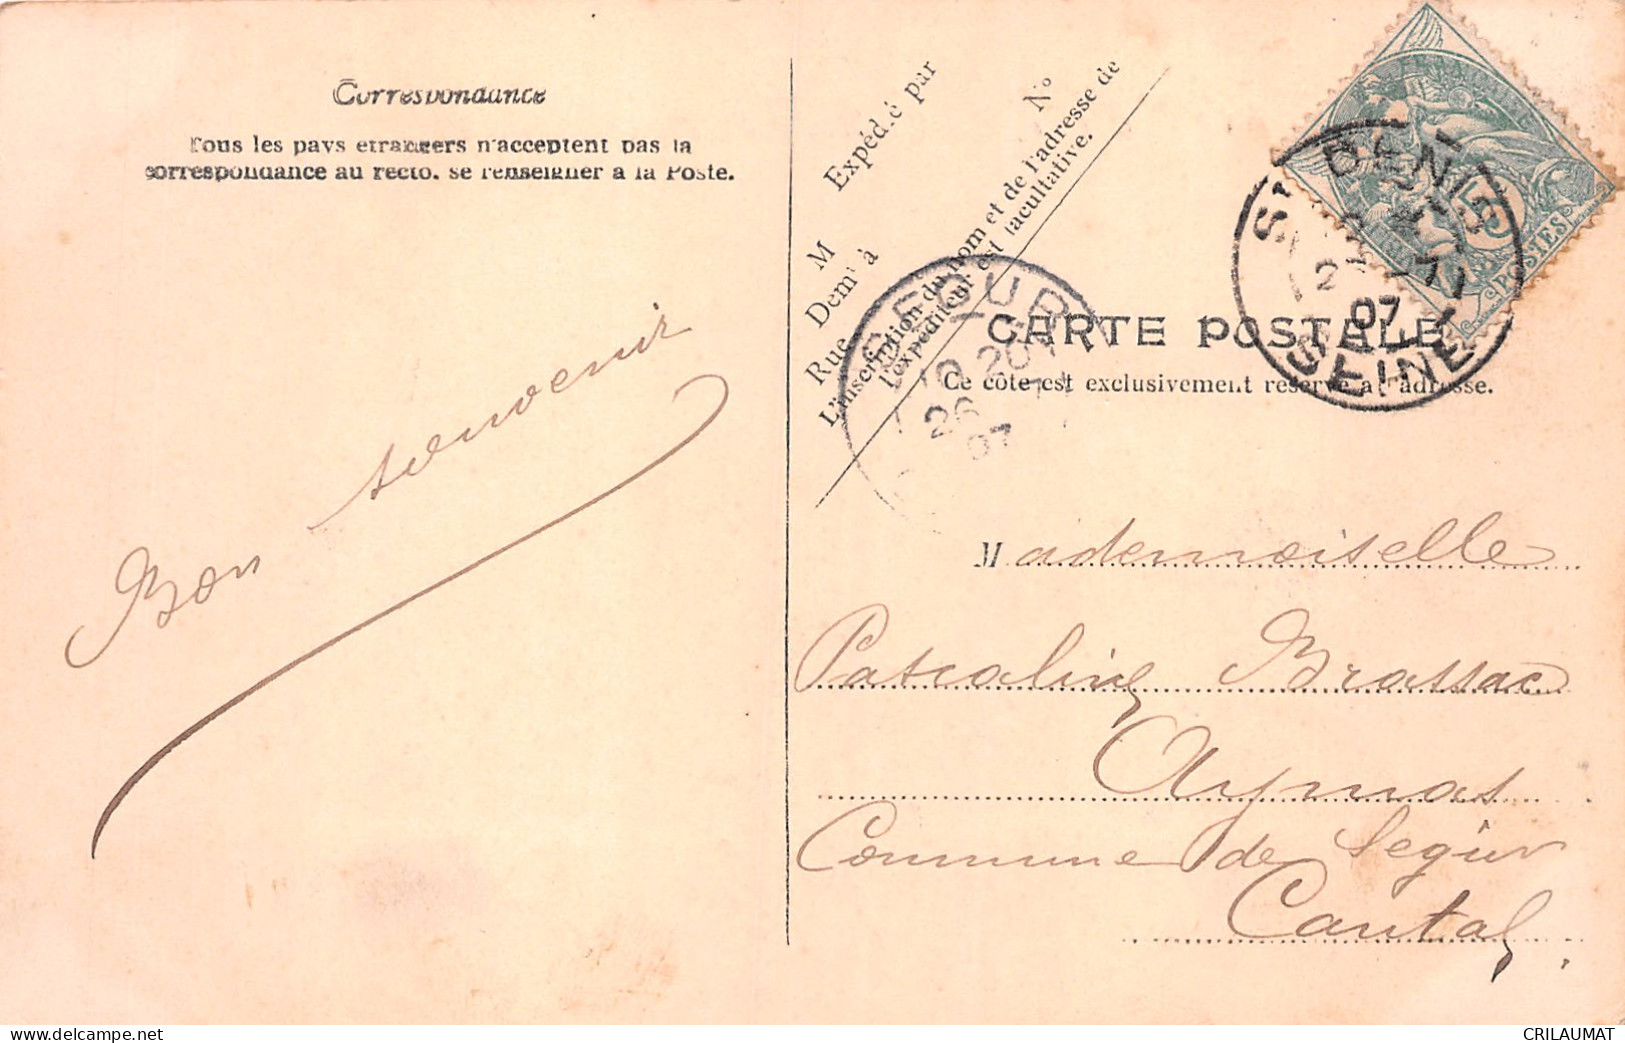 Correspondance
Tous les pays etrangers n'acceptent pas la
correspondance au recto. se renseigner a la Poste.
Bon souvenir
Expédié par
M
Demt à
Rue
No
L'inscription du nom et de l'adresse de
l'expéditeur est facultative.
POSTES
5
ST DENIS
07
SEINE
SEGUR
26
07
CARTE POSTALE
Ce côté est exclusivement réservé a l'adresse.
Mademoiselle
Pascaline Brassac
Aymas
Commune de Ségur
Cantal.
delcampe.net
CRILAUMAT